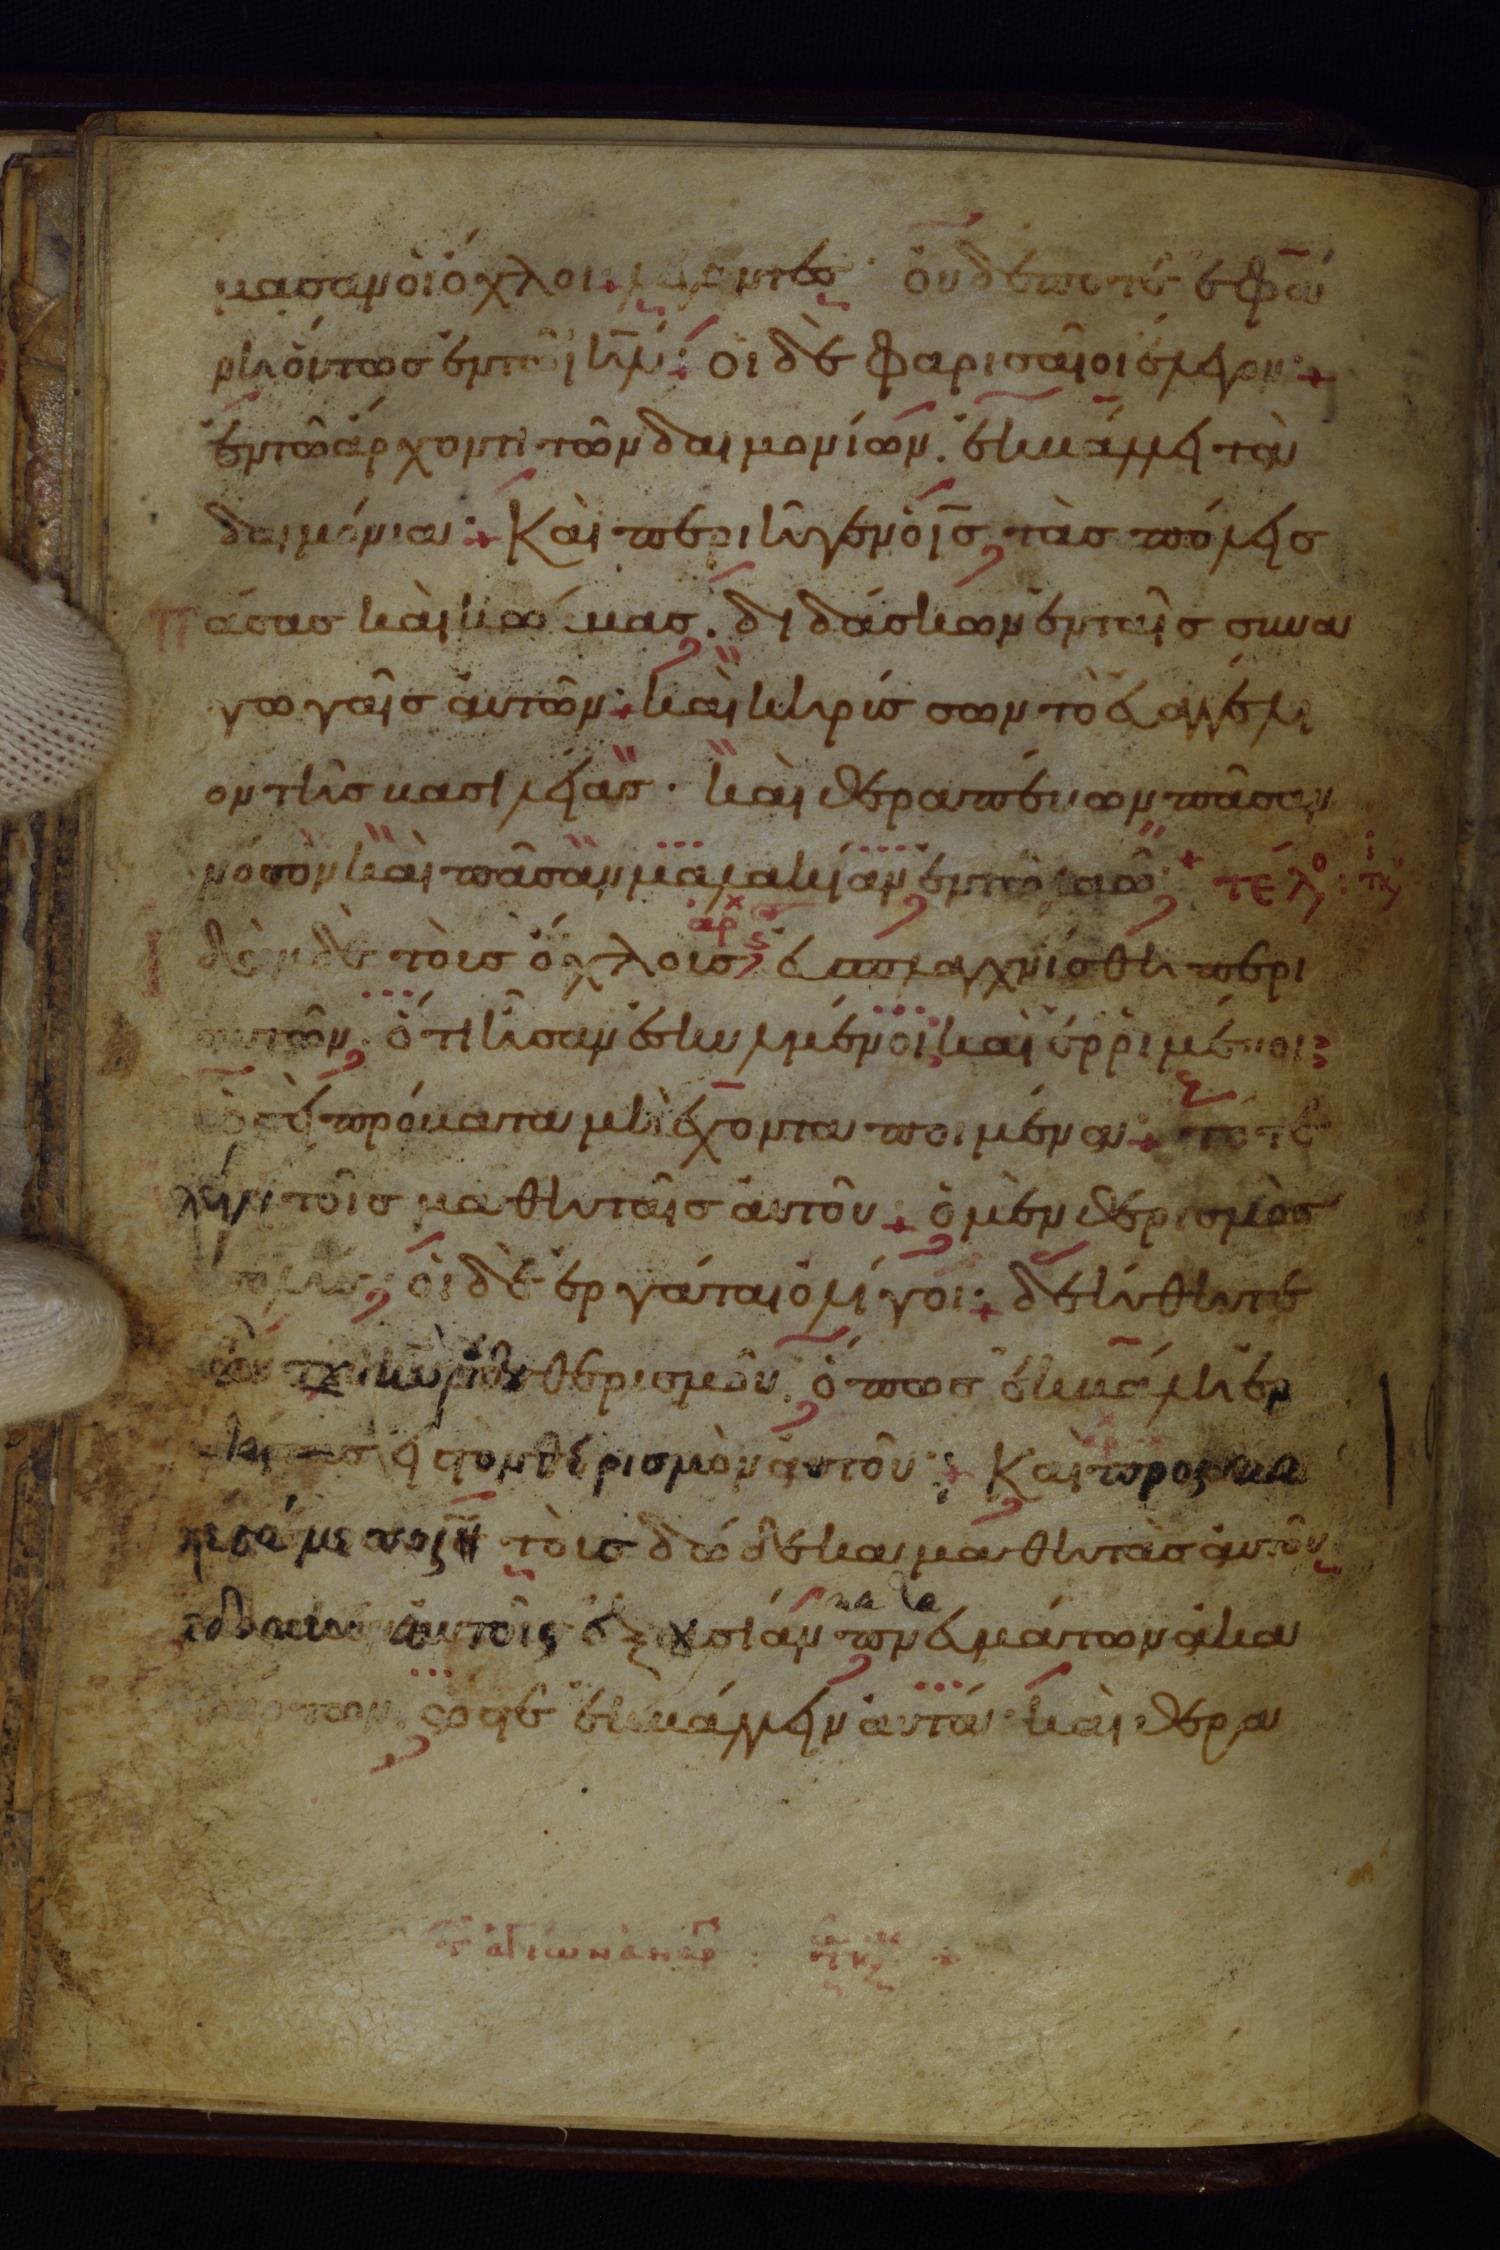 μασαν ὁι ὄχλοι λέγοντες · ὀυδέποτε ἐφάν
ρη ὄντως ἐν τῶ ιηλ · ὁι δὲ φαρισαῖοι ἔλεγον ·
ἐν τῶ άρχοντι τῶν δαιμονίων . ἐκβάλλει τὰ
δαιμόνια : Καὶ περιῆγεν ὁ ις τὰσ πόλεις
πάσας καὶ κώμας . διδάσκων ἐν ταῖς συνα
γωγαῖς ἀυτῶν · καὶ κηρύσσων τὸ ἐυαγγέλι
ον τῆς βασιλείας · καὶ θεραπέυων πᾶσαν
νόσον καὶ πᾶσαν μαλακίαν ἐν τῶ λαῶ + τελο :
ἀρχ
Ιδὼν δὲ τὸυς ὄχλους ἐσπλαγχνίσθη περι
αυτῶν . ὅτι ἦσαν ἐσκυλμένοι καὶ ἐρριμένοι
ὡσεὶ πρόβατα μὴ ἔχοντα ποιμένα · τότε
λέγει τοῖς μαθηταῖς ἀυτοῦ · ὁ μὲν θερισμὸς
πολὺς · ὁι δὲ ἐργάται ὀλίγοι · δεήθητε
οὖν τοῦ κυρίου θερισμοῦ . ὅπως ἐκβάλη ἐρ
γάτας εἰς τὸν θερισμὸν ἀυτοῦ · Καὶ προσκα
λεσάμενος τὸυς δώδεκα μαθητὰς ἀυτοῦ
ἔδωκεν ἀυτοῖς ἐξουσίαν κατα πνευμάτων ἀκα
θάρτων . ὥστε ἐκβάλλειν ἀυτά καὶ θερα